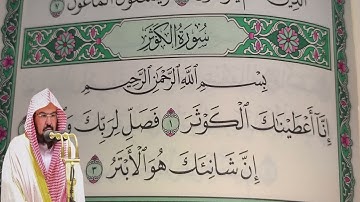 الْمَاعُونَ ٧
سُورَةُ الْكَوْثَرِ
بِسْمِ اللَّهِ الرَّحْمَٰنِ الرَّحِيمِ
إِنَّا أَعْطَيْنَاكَ الْكَوْثَرَ ١ فَصَلِّ لِرَبِّكَ
إِنَّ شَانِئَكَ هُوَ الْأَبْتَرُ ٣